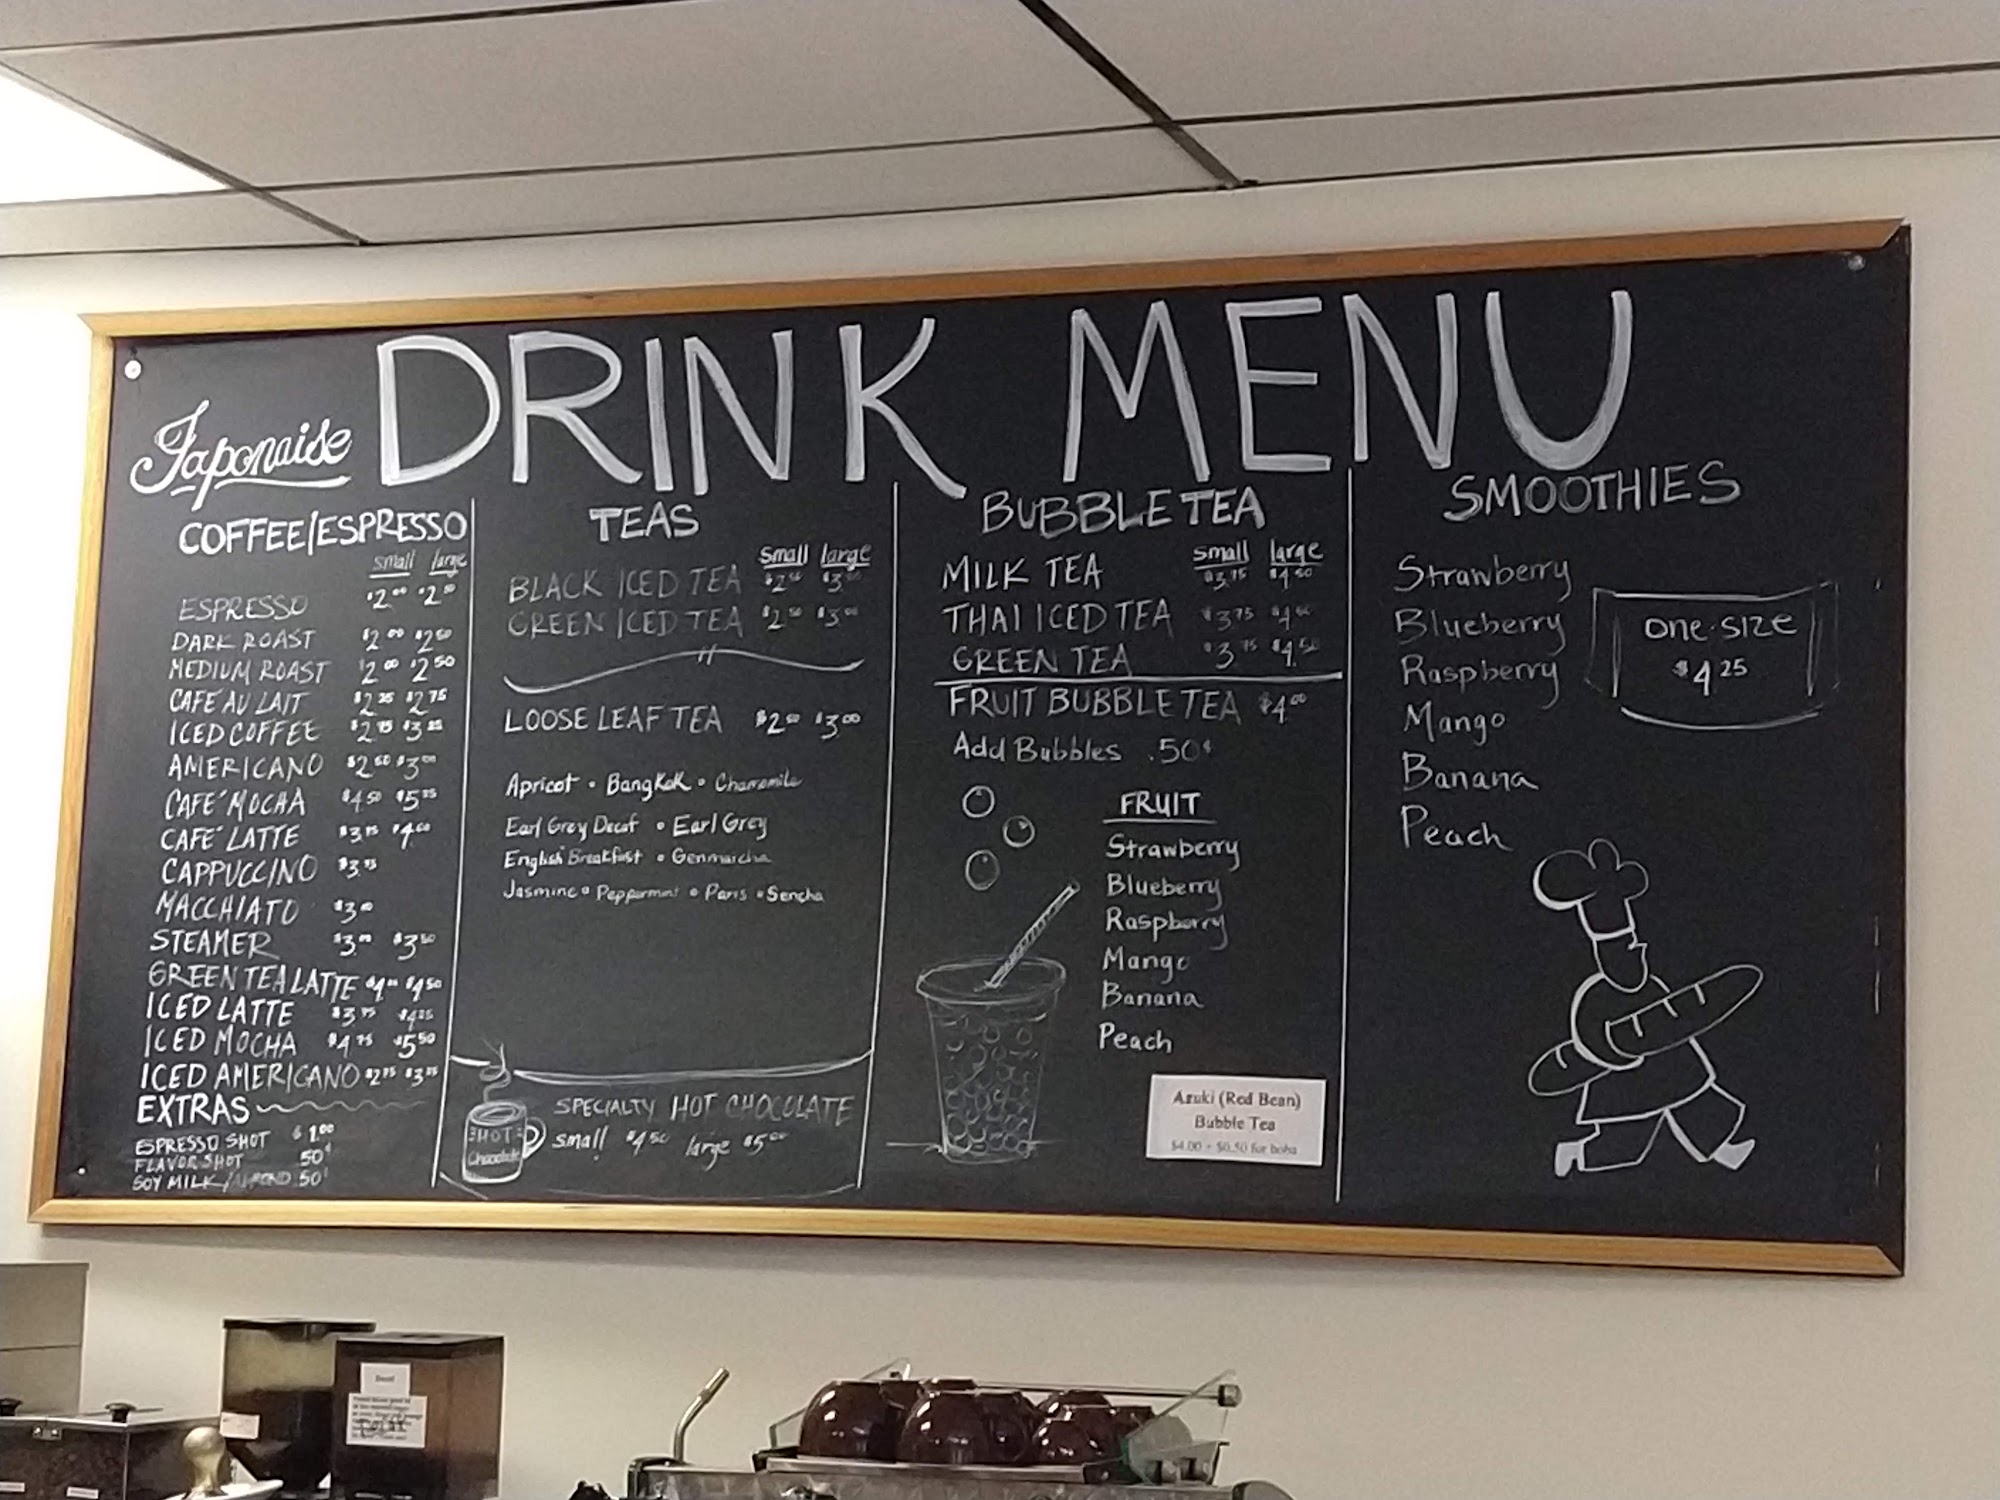 Japonaise
DRINK MENU
COFFEE/ESPRESSO
small large
ESPRESSO $2.00 $2.50
DARK ROAST $2.00 $2.50
MEDIUM ROAST $2.00 $2.50
CAFÉ AU LAIT $2.25 $2.75
ICED COFFEE $2.75 $3.25
AMERICANO $2.50 $3.00
CAFÉ MOCHA $4.50 $5.25
CAFÉ LATTE $3.75 $4.00
CAPPUCCINO $3.75
MACCHIATO $3.00
STEAMER $3.00 $3.50
GREEN TEA LATTE $4.00 $4.50
ICED LATTE $3.75 $4.25
ICED MOCHA $4.75 $5.50
ICED AMERICANO $2.75 $3.25
EXTRAS
ESPRESSO SHOT $1.00
FLAVOR SHOT 50¢
SOY MILK/ALMOND .50¢
TEAS
small large
BLACK ICED TEA $2.50 $3.00
GREEN ICED TEA $2.50 $3.00
LOOSE LEAF TEA $2.50 $3.00
Apricot • BangKoK • Chamomile
Earl Grey Decaf • Earl Grey
English Breakfast • Genmaicha
Jasmine • Peppermint • Paris • Sencha
HOT
Chocolate
SPECIALTY HOT CHOCOLATE
small $4.50 large $5.00
BUBBLE TEA
small large
MILK TEA $3.75 $4.50
THAI ICED TEA $3.75 $4.50
GREEN TEA $3.75 $4.50
FRUIT BUBBLE TEA $4.00
Add Bubbles .50¢
FRUIT
Strawberry
Blueberry
Raspberry
Mango
Banana
Peach
Azuki (Red Bean)
Bubble Tea
$4.00 + $0.50 for boba
SMOOTHIES
Strawberry
Blueberry
Raspberry
Mango
Banana
Peach
one-size
$4.25
Decaf